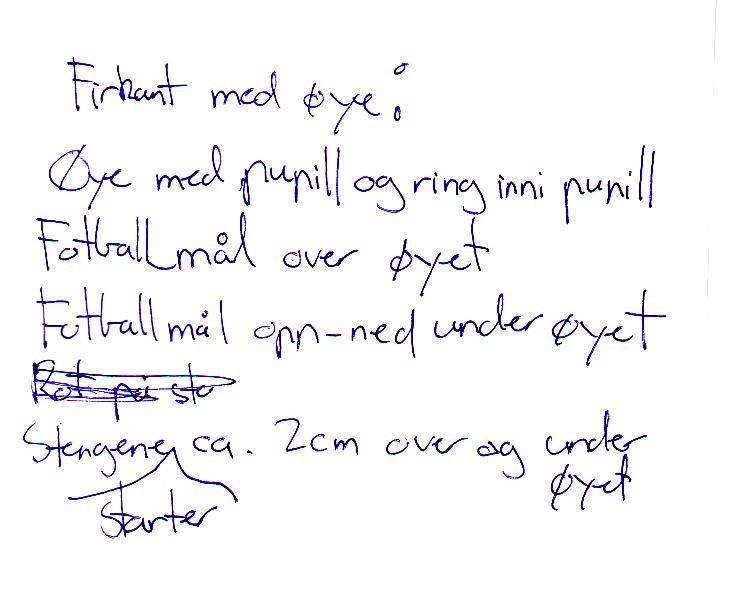 Firkant med øye:
Øye med pupill og ring inni pupill
Fotballmål over øyet
Fotballmål opp-ned under øyet
Stengene starter ca. 2cm over og under
øyet